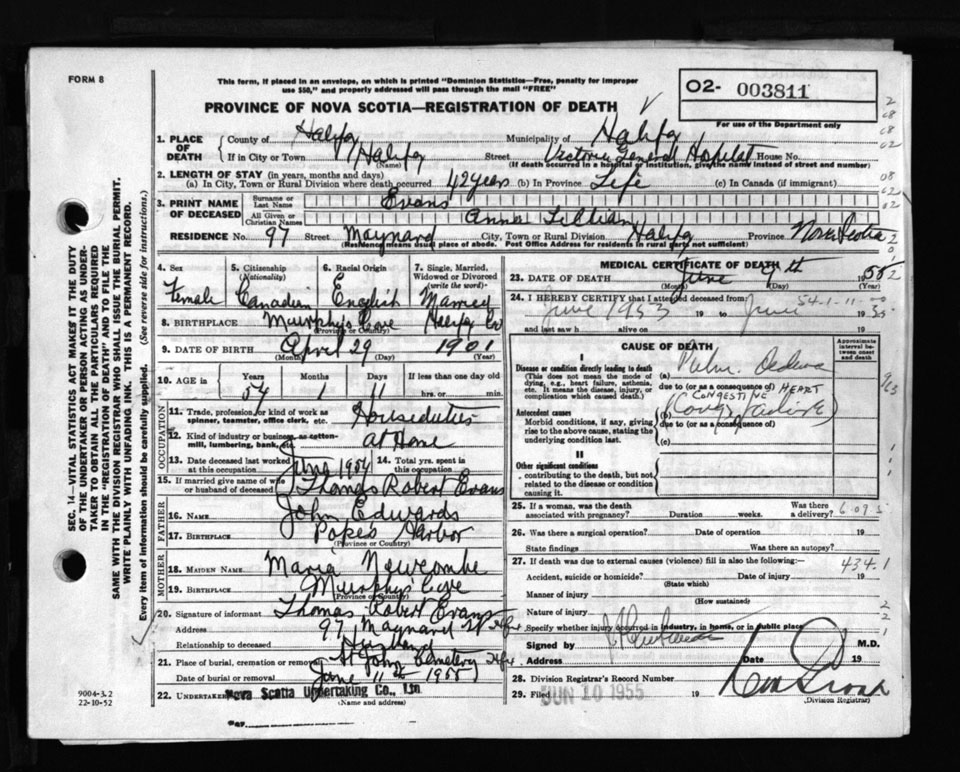 FORM 8
This form, if placed in an envelope, on which is printed "Dominion Statistics—Free, penalty for improper
use $50," and properly addressed will pass through the mail "FREE"
PROVINCE OF NOVA SCOTIA—REGISTRATION OF DEATH
O2- 003811
For use of the Department only
1. PLACE OF DEATH
County of Halifax Municipality of Halifax
If in City or Town Halifax (Name) Street Victoria General Hospital House No.
(If death occurred in a hospital or institution, give the name instead of street and number)
2. LENGTH OF STAY (in years, months and days)
(a) In City, Town or Rural Division where death occurred 42 years (b) In Province Life (c) In Canada (if immigrant)
3. PRINT NAME OF DECEASED
Surname or Last Name Evans
All Given or Christian Names Anna Lillian
RESIDENCE No. 97 Street Maynard City, Town or Rural Division Halifax Province Nova Scotia
(Residence means usual place of abode. Post Office Address for residents in rural parts not sufficient)
4. Sex Female
5. Citizenship (Nationality) Canadian
6. Racial Origin English
7. Single, Married, Widowed or Divorced (write the word)
8. BIRTHPLACE Murphy's Cove Halifax Co
(Province or Country)
9. DATE OF BIRTH April 29 1901
(Month) (Day) (Year)
10. AGE in Years 54 Months 1 Days 11 If less than one day hrs. or min.
OCCUPATION
11. Trade, profession or kind of work as spinner, teamster, office clerk, etc. Houseduties
12. Kind of industry or business, as cotton-mill, lumbering, bank, etc. at Home
13. Date deceased last worked at this occupation June 1954 14. Total yrs. spent in this occupation
15. If married give name of wife or husband of deceased Thomas Robert Evans
FATHER
16. NAME John Edwards
17. BIRTHPLACE Popes Harbor
(Province or Country)
MOTHER
18. MAIDEN NAME Maria Newcombe
19. BIRTHPLACE Murphy's Cove
(Province or Country)
20. Signature of informant Thomas Robert Evans
Address 97 Maynard St Hfx
Relationship to deceased Husband
21. Place of burial, cremation or removal St John Cemetery Hfx
Date of burial or removal June 11th 1955
22. UNDERTAKER Nova Scotia Undertaking Co., Ltd.
(NAME AND ADDRESS)
9004-3.2
22-10-52
MEDICAL CERTIFICATE OF DEATH
23. DATE OF DEATH June 9th 1955
(Month) (Day) (Year)
24. I HEREBY CERTIFY that I attended deceased from:
54-1-11-00
June 1953 19 to June 1955
and last saw h alive on 19
CAUSE OF DEATH
Approximate interval between onset and death
I
Disease or condition directly leading to death
(This does not mean the mode of dying, e.g., heart failure, asthenia, etc. It means the disease, injury, or complication which caused death.)
(a) Pulm. Oedema
due to (or as a consequence of)
CONGESTIVE HEART
(b) (Cong. Failure)
Antecedent causes
Morbid conditions, if any, giving rise to the above cause, stating the underlying condition last.
due to (or as a consequence of)
(c)
II
Other significant conditions
contributing to the death, but not related to the disease or condition causing it.
25. If a woman, was the death associated with pregnancy? Duration weeks. Was there a delivery?
26. Was there a surgical operation? Date of operation 19
State findings Was there an autopsy?
27. If death was due to external causes (violence) fill in also the following:— 434.1
Accident, suicide or homicide? (State which) Date of injury 19
Manner of injury (How sustained)
Nature of injury
Specify whether injury occurred in industry, in home, or in public place
Signed by M.D.
Address Date 19
28. Division Registrar's Record Number
29. Filed JUN 10 1955
(Division Registrar)
SEC. 14—VITAL STATISTICS ACT MAKES IT THE DUTY
OF THE UNDERTAKER OR PERSON ACTING AS UNDER-
TAKER TO OBTAIN ALL THE PARTICULARS REQUIRED
IN THE "REGISTRATION OF DEATH" AND TO FILE THE
SAME WITH THE DIVISION REGISTRAR WHO SHALL ISSUE THE BURIAL PERMIT.
WRITE PLAINLY WITH UNFADING INK. THIS IS A PERMANENT RECORD.
Every item of information should be carefully supplied. (See reverse side for instructions.)